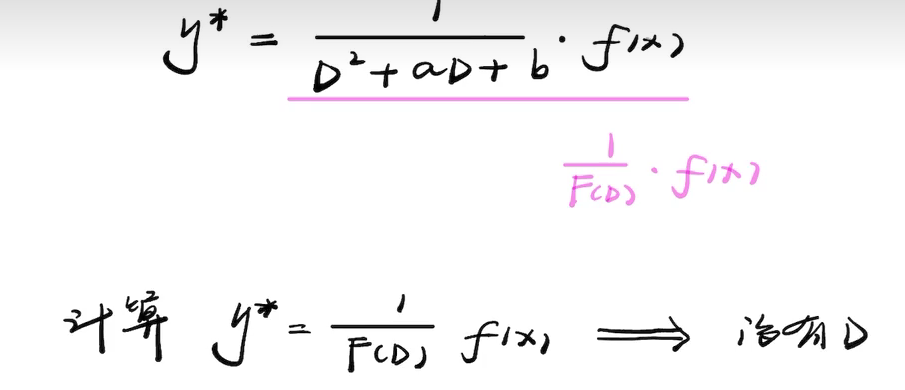 y* = 1/(D²+aD+b) · f(x)
1/F(D) · f(x)
计算 y* = 1/F(D) f(x) ⟹ 没有D